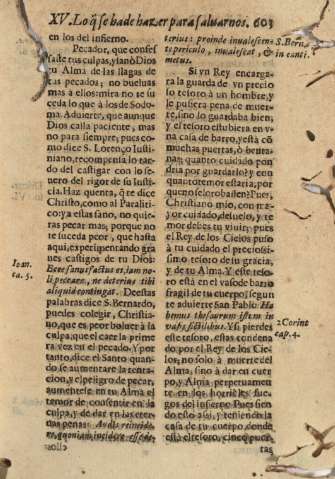 XV. Lo q̃ se ha de hazer para saluarnos. 603
en los del infierno.
Pecador, que confes
saste tus culpas, y sanò Dios
tu Alma de las llagas de
tus pecados, no bueluas
mas a ellos: mira no te su
ceda lo que à los de Sodo-
ma. Aduierte, que aunque
Dios calla paciente, mas
no para siempre; pues co-
mo dize S. Lorenço Iusti-
niano, recompensa lo tar-
do del castigar con lo se-
uero del rigor de su Iusti-
cia. Haz quenta, q̃ te dize
Christo, como al Paraliti-
co: ya estas sano, no quie-
ras pecar mas, porque no
te suceda peor, que hasta
aqui, experimentando gra
ues castigos de tu Dios:
Ecce sanus factus es, iam no-
li peccare, ne deterius tibi
aliquid contingat. De estas
palabras dize S. Bernardo,
puedes colegir, Christia-
no, que es peor boluer à la
culpa, que el caer la prime
ra vez en el pecado. Y por
tanto, dize el Santo quando
se aumentare la tenta-
cion, y el peligro de pecar,
aumente en tu Alma el
temor de consentir en la
culpa, y de dar en las eter-
nas penas:
Ioan.
ca. 5.
terius: proinde inualescen-
te periculo, inualescat, &
metus.
S. Bern.
in canti.
Si vn Rey encarga-
ra la guarda de vn precio
so tesoro à un hombre, y
le pusiera pena de muer-
te, sino lo guardaba bien;
y el tesoro estubiera en v-
na casa de barro, y està cõ
muchas puertas, ò venta-
nas; quanto cuidado pon
dria por guardarlo? y con
quanto temor estaria, por
que no se lo robassen? Pues,
Christiano mio, con ma-
yor cuidado, desuelo, y te
mor debes tu viuir; pues
el Rey de los Cielos puso
à tu cuidado el preciosis-
simo tesoro de su gracia,
y de tu Alma. Y este teso-
ro està en el vaso de barro
fragil de tu cuerpo; segun
te aduierte San Pablo: Ha
bemus thesaurum istum in
vasis fictilibus. Y si pierdes
este tesoro, estas condena
do por el Rey de los Cie-
los; no solo à muerte del
Alma, sino à dar en cuer
po, y Alma perpetuamente
en los horribles fue-
gos del infierno. Pues sien
do esto assi, y teniendo la
casa de tu cuerpo, donde
està el tesoro, cinco puer-
2 Corint
cap. 4.
tas